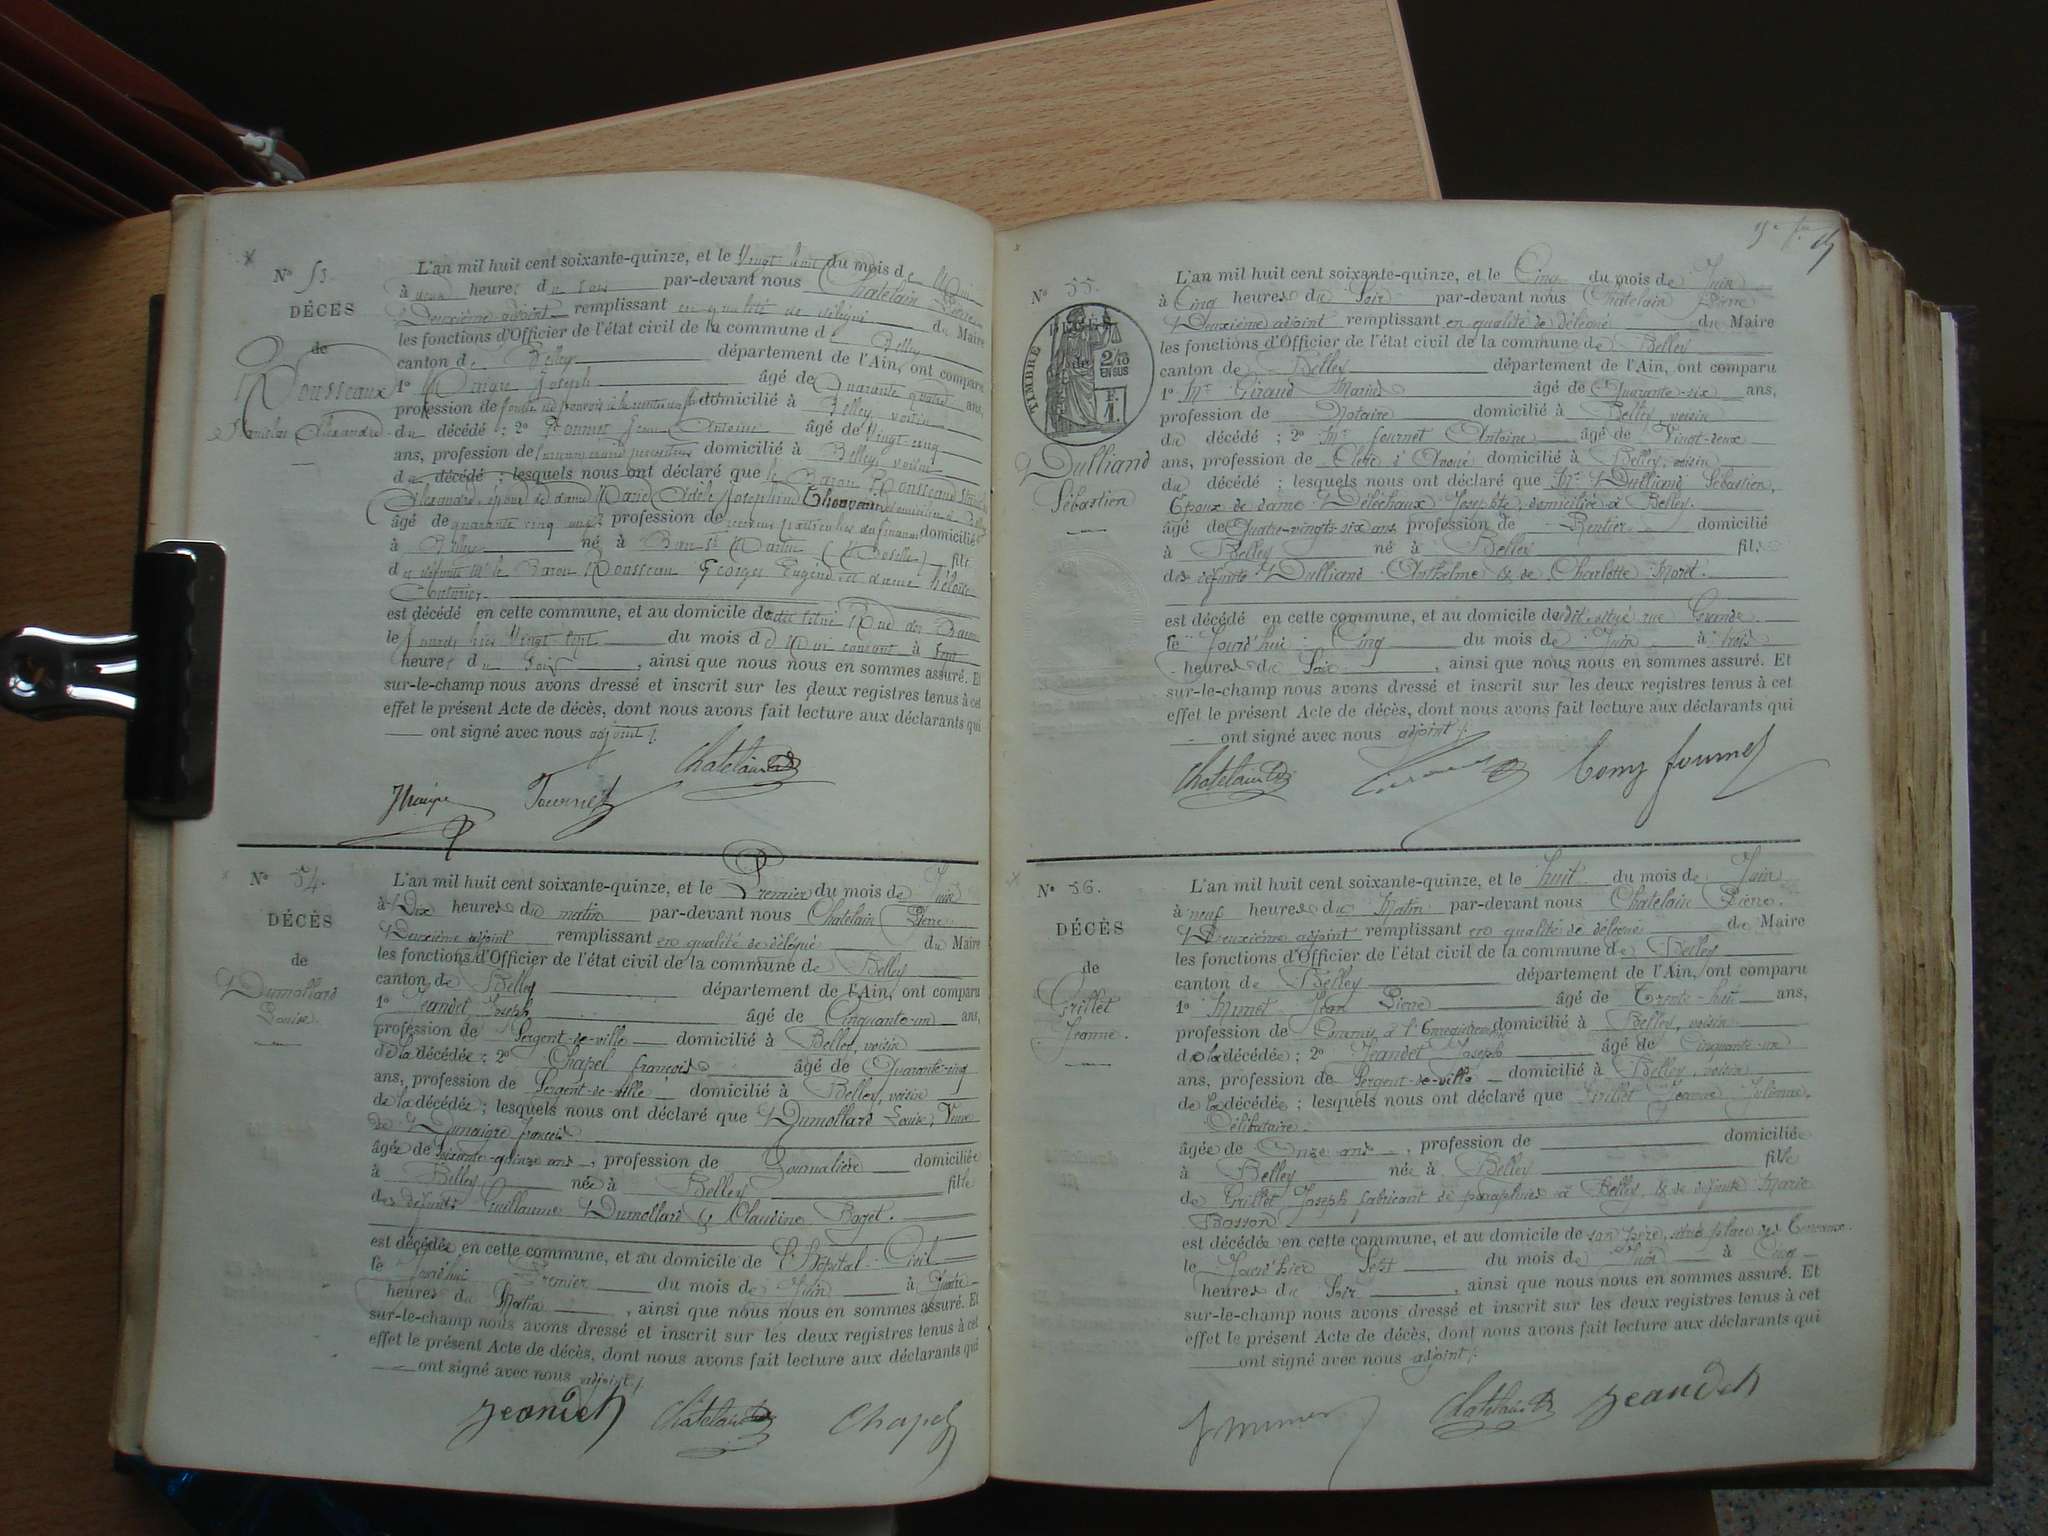 N° 53.
DÉCÈS
de
Rousseau
Stanislas Alexandre
L'an mil huit cent soixante-quinze, et le Vingt huit du mois de Mai
à heures du soir par-devant nous Chatelain Pierre
Deuxième adjoint remplissant en qualité de délégué du Maire
les fonctions d'Officier de l'état civil de la commune de Belley
canton de Belley département de l'Ain, ont comparu
1° Joseph âgé de Quarante quatre ans,
profession de domicilié à Belley, voisin
du décédé ; 2° Fournet Jean Antoine âgé de Vingt-cinq
ans, profession de domicilié à Belley, voisin
du décédé ; lesquels nous ont déclaré que le Baron Rousseau
Alexandre, époux de dame Marie Adèle Joséphine domicilié à Belley
âgé de quarante cinq ans profession de receveur particulier des finances domicilié
à Belley né à Ban St Martin (Moselle) fils
des défunts Mr le Baron Rousseau Georges Eugène et dame Héloïse
Couturier
est décédé en cette commune, et au domicile de
le Jourd'hier Vingt sept du mois de Mai courant à sept
heures du soir, ainsi que nous nous en sommes assuré. Et
sur-le-champ nous avons dressé et inscrit sur les deux registres tenus à cet
effet le présent Acte de décès, dont nous avons fait lecture aux déclarants qui
ont signé avec nous adjoint /.
Chatelain
Fournet
N° 54.
DÉCÈS
de
Dumollard
Louise.
L'an mil huit cent soixante-quinze, et le Premier du mois de Juin
à Dix heures du matin par-devant nous Chatelain Pierre
Deuxième adjoint remplissant en qualité de délégué du Maire
les fonctions d'Officier de l'état civil de la commune de Belley
canton de Belley département de l'Ain, ont comparu
1° Jeandet Joseph âgé de Cinquante-un ans,
profession de Sergent-de-ville domicilié à Belley, voisin
de la décédée ; 2° Chapel françois âgé de Quarante-cinq
ans, profession de Sergent-de-ville domicilié à Belley, voisin
de la décédée ; lesquels nous ont déclaré que Dumollard Louise, Veuve
de françois
âgée de soixante-quinze ans, profession de Journalière domiciliée
à Belley née à Belley fille
des défunts Guillaume Dumollard & Claudine
est décédée en cette commune, et au domicile de l'hôpital-Civil
le Jourd'hui Premier du mois de Juin à Quatre
heures du Matin, ainsi que nous nous en sommes assuré. Et
sur-le-champ nous avons dressé et inscrit sur les deux registres tenus à cet
effet le présent Acte de décès, dont nous avons fait lecture aux déclarants qui
ont signé avec nous adjoint /.
Jeandet Chatelain Chapel
N° 55.
TIMBRE
2/10
EN SUS
Dulliand
Sébastien
L'an mil huit cent soixante-quinze, et le Cinq du mois de Juin
à Cinq heures du Soir par-devant nous Chatelain Pierre
Deuxième adjoint remplissant en qualité de délégué du Maire
les fonctions d'Officier de l'état civil de la commune de Belley
canton de Belley département de l'Ain, ont comparu
1° Mr Girand Marius âgé de Quarante-six ans,
profession de Notaire domicilié à Belley, voisin
du décédé ; 2° Mr fournet Antoine âgé de Vingt-deux
ans, profession de Clerc d'Avoué domicilié à Belley, voisin
du décédé ; lesquels nous ont déclaré que Mr Dulliand Sébastien,
Epoux de dame Joséphte, domicilié à Belley.
âgé de Quatre-vingt-six ans profession de Rentier domicilié
à Belley né à Belley fils
des défunts Dulliand Anthelme & de Charlotte Moret.
est décédé en cette commune, et au domicile de dit situé rue Grande
le Jourd'hui Cinq du mois de Juin à trois
heures du Soir, ainsi que nous nous en sommes assuré. Et
sur-le-champ nous avons dressé et inscrit sur les deux registres tenus à cet
effet le présent Acte de décès, dont nous avons fait lecture aux déclarants qui
ont signé avec nous adjoint /.
Chatelain Tony fournet
N° 56.
DÉCÈS
de
Grillet
Jeanne.
L'an mil huit cent soixante-quinze, et le huit du mois de Juin
à neuf heures du Matin par-devant nous Chatelain Pierre.
Deuxième adjoint remplissant en qualité de délégué du Maire
les fonctions d'Officier de l'état civil de la commune de Belley
canton de Belley département de l'Ain, ont comparu
1° Jean Pierre âgé de Trente-huit ans,
profession de Commis à l'Enregistrement domicilié à Belley, voisin
de la décédée ; 2° Jeandet Joseph âgé de Cinquante-un
ans, profession de Sergent-de-ville domicilié à Belley, voisin
de la décédée ; lesquels nous ont déclaré que Grillet Jeanne Julienne,
Célibataire.
âgée de Onze ans, profession de domiciliée
à Belley née à Belley fille
de Grillet Joseph fabricant de parapluies à Belley, & de défunte Marie
Bosson
est décédée en cette commune, et au domicile de son père, place des Terreaux.
le Jourd'hier Sept du mois de Juin à Cinq
heures du Soir, ainsi que nous nous en sommes assuré. Et
sur-le-champ nous avons dressé et inscrit sur les deux registres tenus à cet
effet le présent Acte de décès, dont nous avons fait lecture aux déclarants qui
ont signé avec nous adjoint /.
Chatelain Jeandet